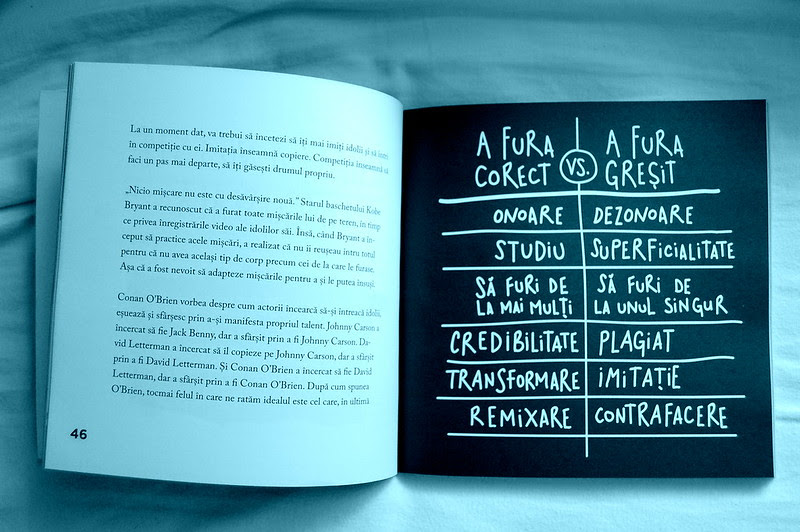 La un moment dat, va trebui să încetezi să îți mai imiți idolii și să intri
în competiție cu ei. Imitația înseamnă copiere. Competiția înseamnă să
faci un pas mai departe, să îți găsești drumul propriu.
„Nicio mișcare nu este cu desăvârșire nouă.” Starul baschetului Kobe
Bryant a recunoscut că a furat toate mișcările lui de pe teren, în timp
ce privea înregistrările video ale idolilor săi. Însă, când Bryant a în-
ceput să practice acele mișcări, a realizat că nu îi reușeau întru totul
pentru că nu avea același tip de corp precum cei de la care le furase.
Așa că a fost nevoit să adapteze mișcările pentru a și le putea însuși.
Conan O’Brien vorbea despre cum actorii încearcă să-și întreacă idolii,
eșuează și sfârșesc prin a-și manifesta propriul talent. Johnny Carson a
încercat să fie Jack Benny, dar a sfârșit prin a fi Johnny Carson. Da-
vid Letterman a încercat să îl copieze pe Johnny Carson, dar a sfârșit
prin a fi David Letterman. Și Conan O’Brien a încercat să fie David
Letterman, dar a sfârșit prin a fi Conan O’Brien. După cum spunea
O’Brien, tocmai felul în care ne ratăm idealul este cel care, în ultimă
46
A FURA CORECT VS. A FURA GREȘIT
ONOARE DEZONOARE
STUDIU SUPERFICIALITATE
SĂ FURI DE LA MAI MULȚI SĂ FURI DE LA UNUL SINGUR
CREDIBILITATE PLAGIAT
TRANSFORMARE IMITAȚIE
REMIXARE CONTRAFACERE